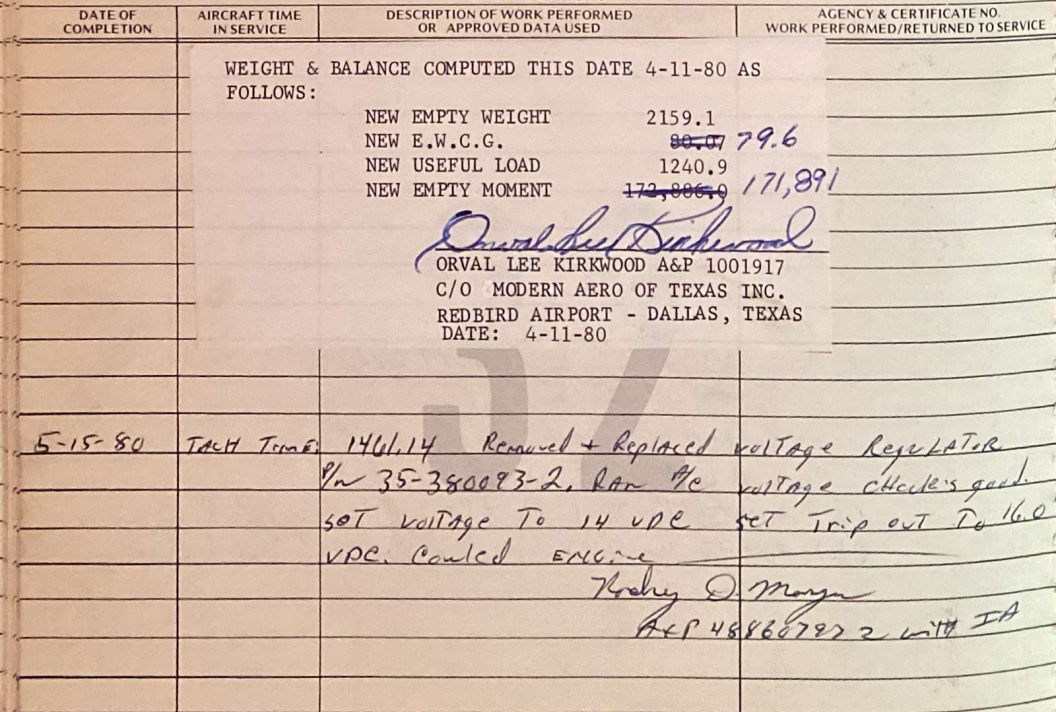 DATE OF COMPLETION
AIRCRAFT TIME IN SERVICE
DESCRIPTION OF WORK PERFORMED OR APPROVED DATA USED
AGENCY & CERTIFICATE NO. WORK PERFORMED/RETURNED TO SERVICE
WEIGHT & BALANCE COMPUTED THIS DATE 4-11-80 AS
FOLLOWS:
NEW EMPTY WEIGHT 2159.1
NEW E.W.C.G. 80.07 79.6
NEW USEFUL LOAD 1240.9
NEW EMPTY MOMENT 172,886.0 171,891
Orval Lee Kirkwood
ORVAL LEE KIRKWOOD A&P 1001917
C/O MODERN AERO OF TEXAS INC.
REDBIRD AIRPORT - DALLAS, TEXAS
DATE: 4-11-80
5-15-80 TACH TIME: 1461.14 Removed + Replaced voltage Regulator
P/N 35-380093-2. RAN A/C voltage check's good.
SET voltage To 14 VDC SET Trip out To 16.0
VDC. Cowled ENGine
A&P 48860797 2 with IA